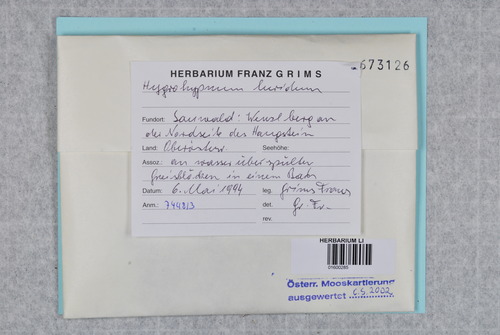 673126
HERBARIUM FRANZ GRIMS
Hygrohypnum luridum
Fundort: Sauwald: an
der Nordseite des Haugstein
Land: Oberösterr. Seehöhe:
Assoz.: an wasserüberspülten
in einem Bach
Datum: 6. Mai 1994 leg. Grims Franz
Anm.: 7448/3 det. Gr. Fr.
rev.
HERBARIUM LI
01600285
Österr. Mooskartierung
ausgewertet 6.5.2002